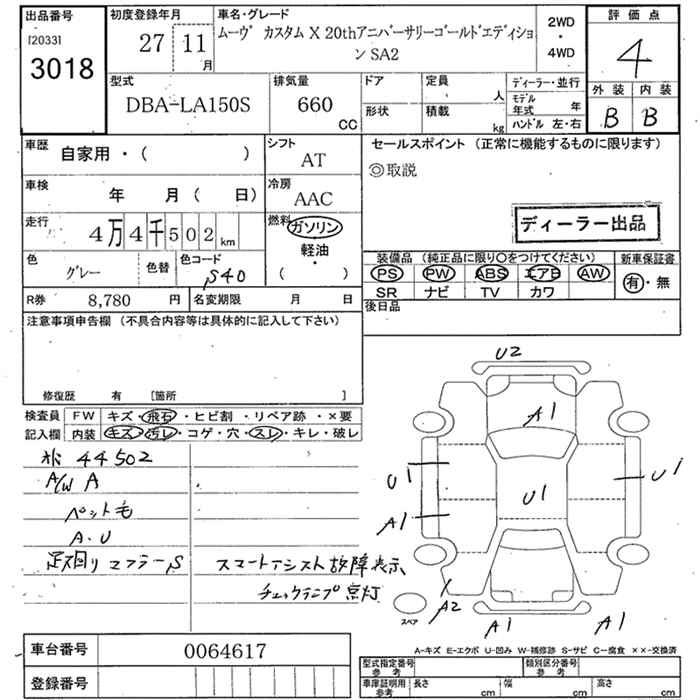 出品番号
[2033]
3018
初度登録年月
27 11 月
車名・グレード
ムーヴ カスタム X 20thアニバーサリーゴールドエディショ
ン SA2
2WD
・
4WD
評価点
4
外装 内装
B B
型式
DBA-LA150S
排気量
660 CC
ドア
形状
定員 人
積載 kg
ディーラー・並行
モデル
年式 年
ハンドル 左・右
車歴
自家用・( )
シフト
AT
車検
年 月( 日)
冷房
AAC
走行
4万4千502km
燃料
ガソリン
軽油・
( )
色
グレー
色替
色コード
S40
R券 8,780 円
名変期限 月 日
セールスポイント (正常に機能するものに限ります)
◎取説
ディーラー出品
装備品 (純正品に限り○をつけてください)
PS PW ABS エアB AW
SR ナビ TV カワ
新車保証書
有・無
後日品
注意事項申告欄 (不具合内容等は具体的に記入して下さい)
修復歴 有 [箇所 ]
検査員
記入欄
FW キズ・飛石・ヒビ割・リペア跡・×要
内装 キズ・汚レ・コゲ・穴・スレ・キレ・破レ
44502
A/W A
ペット毛
A・U
足廻り マフラーS
スマートアシスト故障表示、
チェックランプ点灯
U2
A1
U1
U1
U1
A1
A2
A1
A1
スペア
A-キズ E-エクボ U-凹み W-補修跡 S-サビ C-腐食 ××-交換済
車台番号 0064617
登録番号
型式指定番号
参考
類別区分番号
参考
車庫証明用
参考
長さ cm
幅 cm
高さ cm